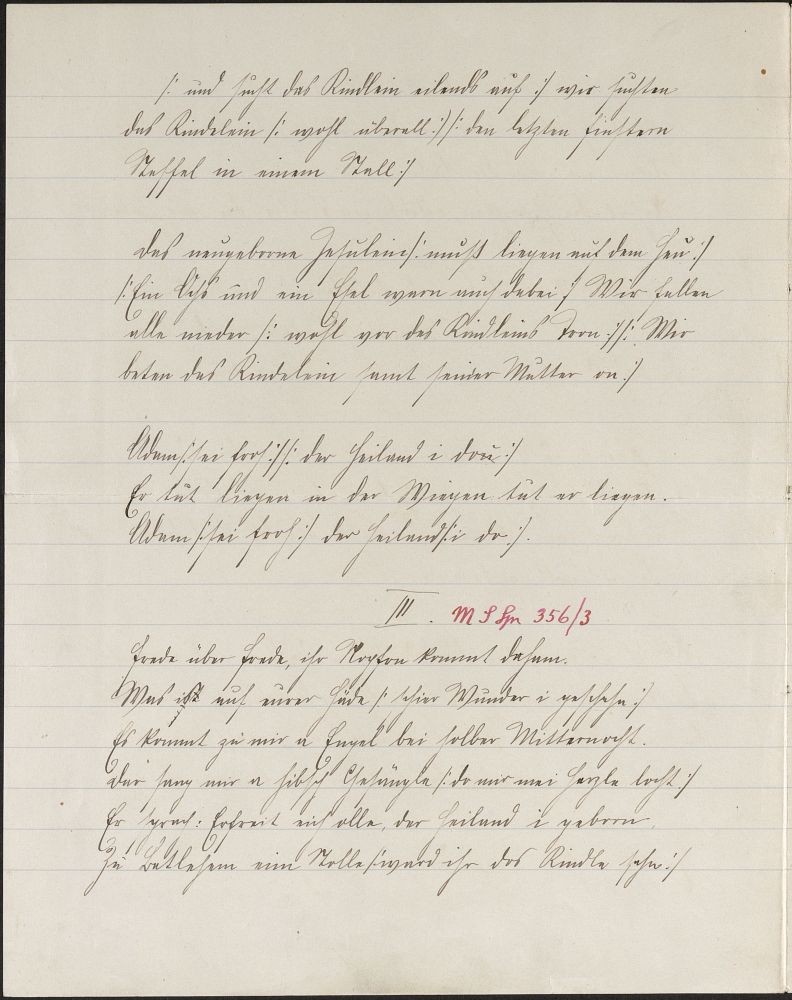 /: und sucht das Kindlein eilends auf :/ wir suchten
das Kindelein /: wohl überall :/ /: den letzten finstern
Steffel in einem Stall :/
Das neugeborne Jesulein /: muß liegen auf dem Heu :/
/: Ein Ochs und ein Esel warn auch dabei :/ Wir fallen
alle nieder /: wohl vor des Kindleins Tron :/ /: Wir
beten das Kindelein samt seiner Mutter on :/
Adam /: sei froh :/ /: der Heiland i dou :/
Er tut liegen in der Wiegen tut er liegen.
Adam /: sei froh :/ der Heiland /: i do :/.
III. 356/3
Frede über Frede, ihr Noppfon kommt daham.
Was ist auf eurer Häde /: schier Wunder i geschehn :/
Es kommt zu mir a Engel bei holber Mitternocht.
Dar sang mir a hibsch Gesängla /: do mir mei Herzle locht :/
Er sproch: Erfreit eich olle, der Heiland i geborn.
Zu Betlehem eim Stolle /: ward ihr dos Kindle sehn :/